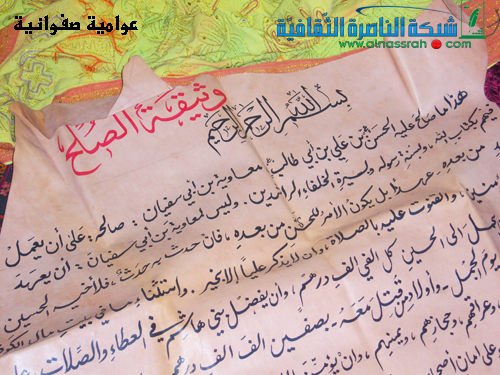 عوامية صفوانية
شبكة الناصرة الثقافية
www.alnassrah.com
وثيقة الصلح
بسم الله الرحمن الرحيم
هذا ما صالح عليه الحسن بن علي بن أبي طالب معاوية بن أبي سفيان: صالحه على أن يعمل
فيهم بكتاب الله، ولسنة رسوله ولسيرة الخلفاء الراشدين. وليس لمعاوية بن أبي سفيان: أن يعهد
من بعده. عهد بل يكون الأمر للحسن من بعده، فان حدث به حدث، فلأخيه الحسين
والقنوت عليه بالصلاة، وان لا يذكر علياً إلا بخير. واستثناء ما في بيت مال الكوفة
يحمل الى الحسين كل الفي الف درهم، وان يفضل بني هاشم في العطاء والصلات على
يوم الجمل وأولاد من قتل معه بصفين الف الف درهم
وعراقهم، وحجازهم، ويمنهم، وان يؤمن
وعلى أمان أصحاب